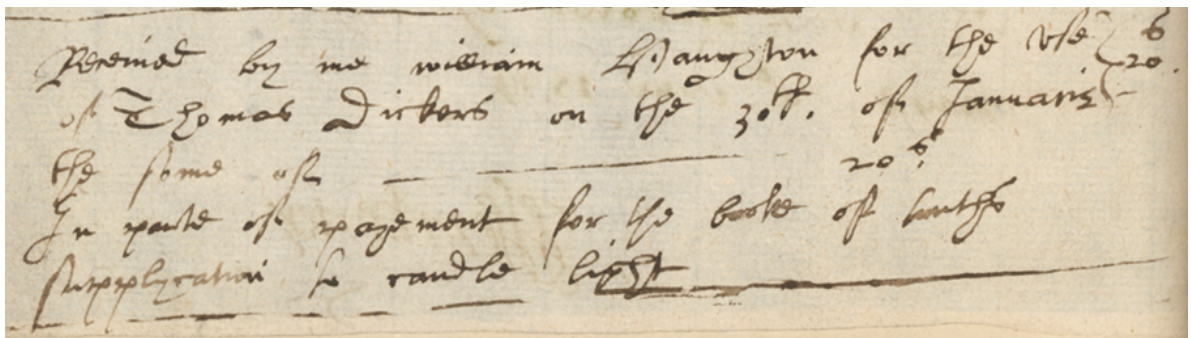 Receiued by me william Haughton for the vse s
of Thomas Dickers on the 30th. of Januarie 20.
the some of 20 s.
In parte of payement for the booke of truthes
supplycation to candle light